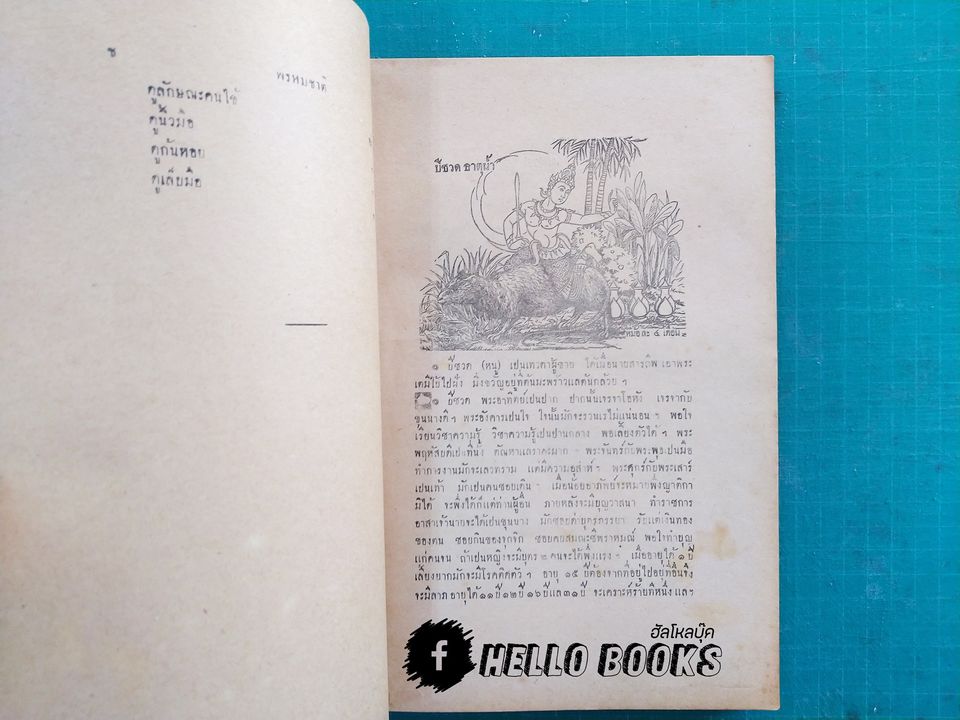 ช
พรหมชาติ
ดูลักษณะคนใช้
ดูนิ้วมือ
ดูก้นหอย
ดูเล็บมือ
ปีชวด ธาตุน้ำ
หม้อละ ๔ เดือน
๏ ปีชวด (หนู) เป็นเทวดาผู้ชาย ได้เมื่อนายสารถีพ เอาพระ
เตมีใบ้ไปฝัง มิ่งขวัญอยู่ที่ต้นมะพร้าวแลต้นกล้วย ฯ
๏ ปีชวด พระอาทิตย์เป็นปาก ปากนั้นเจรจาโอหัง เจรจากับ
ขุนนางดี ฯ พระอังคารเป็นใจ ใจนั้นมักจะรวนเรไม่แน่นอน ฯ พอใจ
เรียนวิชาความรู้ วิชาความรู้เป็นปานกลาง พอเลี้ยงตัวได้ ฯ พระ
พฤหัสบดีเป็นที่นั่ง ตัณหาแลราคะมาก ฯ พระจันทร์กับพระพุธเป็นมือ
ทำการงานมักจะเลวทราม แต่มีความอุส่าห์ ฯ พระศุกร์กับพระเสาร์
เป็นเท้า มักเป็นคนชอบเดิน ฯ เมื่อน้อยอาภัพจะหมายพึ่งญาติกา
มิได้ จะพึ่งได้ก็แต่ท่านผู้อื่น ภายหลังจะมีบุญวาสนา ทำราชการ
อาสาเจ้านายจะได้เป็นขุนนาง มักชอบค่าบุตรภรรยา
ของตน ชอบกินของจุกจิก ชอบคบสมณะชีพราหมณ์ พอใจทำบุญ
แก่คนจน ถ้าเป็นหญิงจะมีบุตร ๒ คนจะได้พึ่งแรง ฯ เมื่ออายุได้ ๑ ปี
เลี้ยงยากมักจะมีโรคติดตัว ฯ อายุ ๑๕ ปีต้องจากที่อยู่ไปอยู่ที่อื่นจึง
จะมีลาภ อายุได้ ๑๑ ปี ๑๒ ปี ๑๖ ปีแล ๓๑ ปี จะเคราะห์ร้ายที่หนึ่ง แลฯ
ฮัลโหลบุ๊ค
f HELLO BOOKS